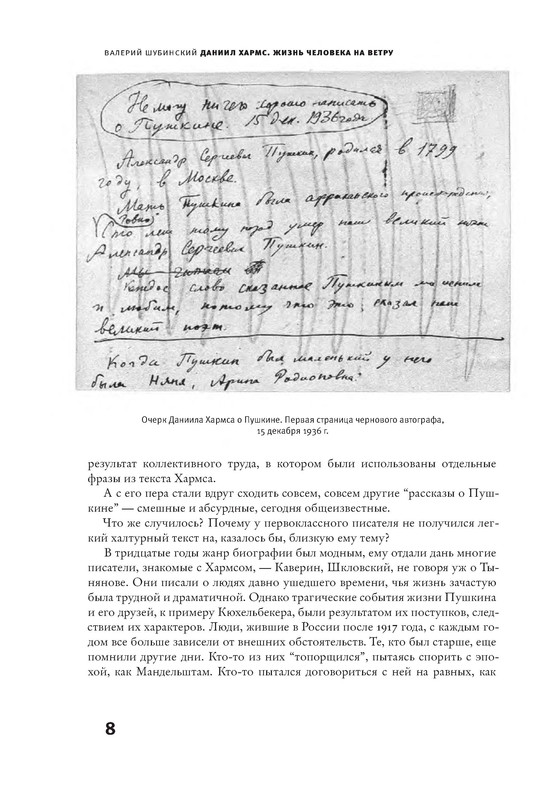 ВАЛЕРИЙ ШУБИНСКИЙ ДАНИИЛ ХАРМС. ЖИЗНЬ ЧЕЛОВЕКА НА ВЕТРУ
Не могу ничего хорошо написать
о Пушкине. 15 дек. 1936 года
Александр Сергеевич Пушкин, родился в 1799
году, в Москве.
Мать Пушкина была африканского происхождения,
Ровно
Сто лет тому назад умер наш великий поэт
Александр Сергеевич Пушкин.
Каждое слово сказанное Пушкиным мы ценим
и любим, потому что это, сказал наш
великий поэт.
Когда Пушкин был маленький у него
была Няня, Арина Родионовна
Очерк Даниила Хармса о Пушкине. Первая страница чернового автографа,
15 декабря 1936 г.
результат коллективного труда, в котором были использованы отдельные
фразы из текста Хармса.
А с его пера стали вдруг сходить совсем, совсем другие “рассказы о Пуш-
кине” — смешные и абсурдные, сегодня общеизвестные.
Что же случилось? Почему у первоклассного писателя не получился лег-
кий халтурный текст на, казалось бы, близкую ему тему?
В тридцатые годы жанр биографии был модным, ему отдали дань многие
писатели, знакомые с Хармсом, — Каверин, Шкловский, не говоря уж о Ты-
нянове. Они писали о людях давно ушедшего времени, чья жизнь зачастую
была трудной и драматичной. Однако трагические события жизни Пушкина
и его друзей, к примеру Кюхельбекера, были результатом их поступков, след-
ствием их характеров. Люди, жившие в России после 1917 года, с каждым го-
дом все больше зависели от внешних обстоятельств. Те, кто был старше, еще
помнили другие дни. Кто-то из них “топорщился”, пытаясь спорить с эпо-
хой, как Мандельштам. Кто-то пытался договориться с ней на равных, как
8